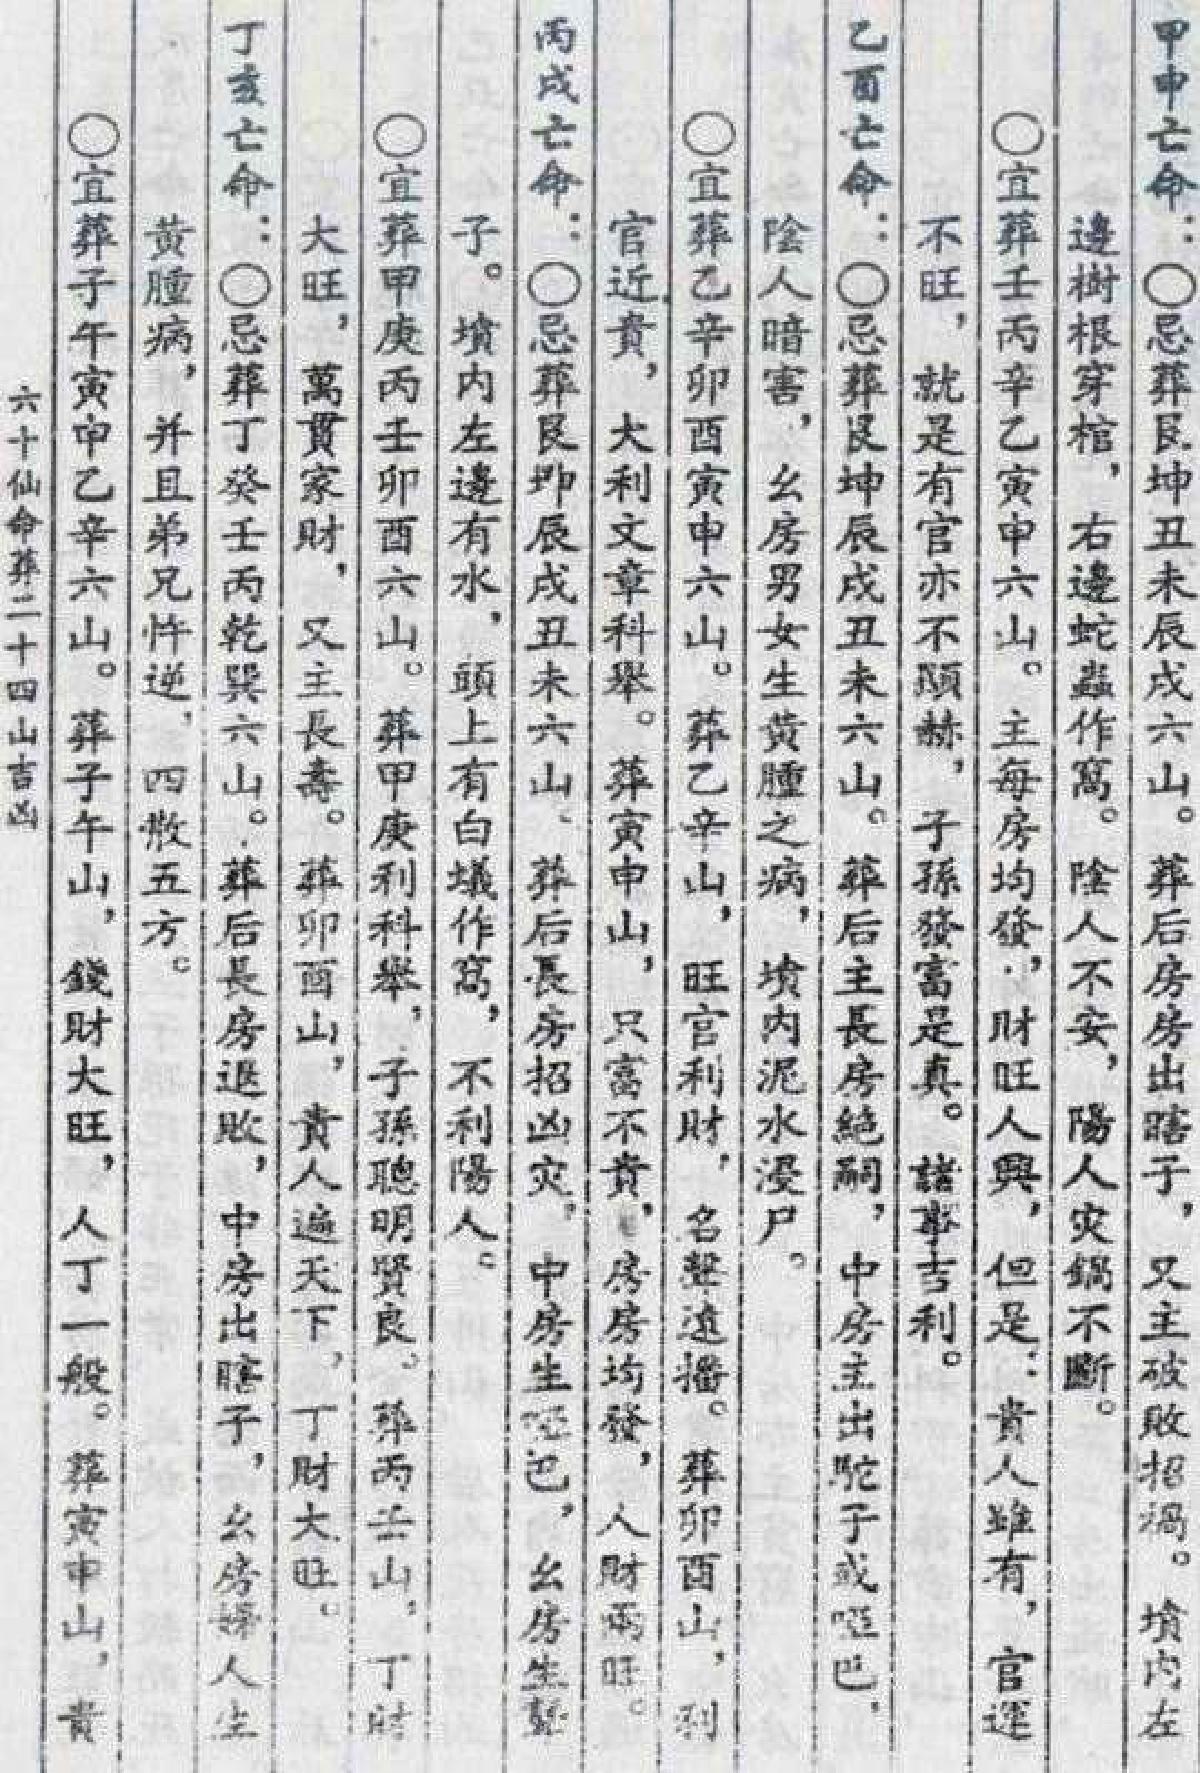 甲申亡命：○忌葬艮坤丑未辰戌六山。葬后房房出瞎子，又主破敗招禍。墳内左
邊樹根穿棺，右邊蛇蟲作窩。陰人不安，陽人灾鍋不斷。
○宜葬壬丙辛乙寅申六山。主每房均發，財旺人興，但是：貴人雖有，官運
不旺，就是有官亦不顯赫，子孫發富是真。諸事吉利。
乙酉亡命：○忌葬艮坤辰戌丑未六山。葬后主長房絕嗣，中房主出駝子或啞巴，
陰人暗害，幺房男女生黄腫之病，墳内泥水浸尸。
○宜葬乙辛卯酉寅申六山。葬乙辛山，旺官利財，名聲遠播。葬卯酉山，利
官近貴，大利文章科舉。葬寅申山，只富不貴，房房均發，人財兩旺。
丙戌亡命：○忌葬艮坤辰戌丑未六山。葬后長房招凶灾，中房生啞巴，幺房生聾
子。墳内左邊有水，頭上有白蟻作窩，不利陽人。
○宜葬甲庚丙壬卯酉六山。葬甲庚利科舉，子孫聰明賢良。葬丙壬山，丁財
大旺，萬貫家財，又主長壽。葬卯酉山，貴人遍天下，丁財大旺。
丁亥亡命：○忌葬丁癸壬丙乾巽六山。葬后長房退敗，中房出瞎子，幺房婦人生
黄腫病，并且弟兄忤逆，四散五方。
○宜葬子午寅申乙辛六山。葬子午山，錢財大旺，人丁一般。葬寅申山，貴
六十仙命葬二十四山吉凶